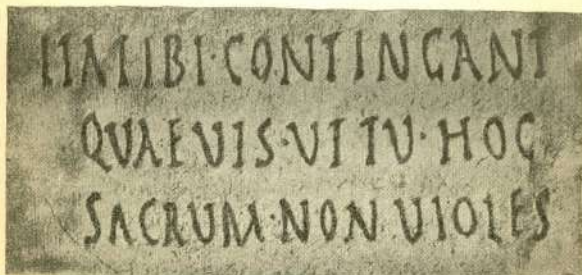 ITA TIBI·CONTINGANT
QUAE VIS·UT TU·HOC
SACRUM·NON VIOLES